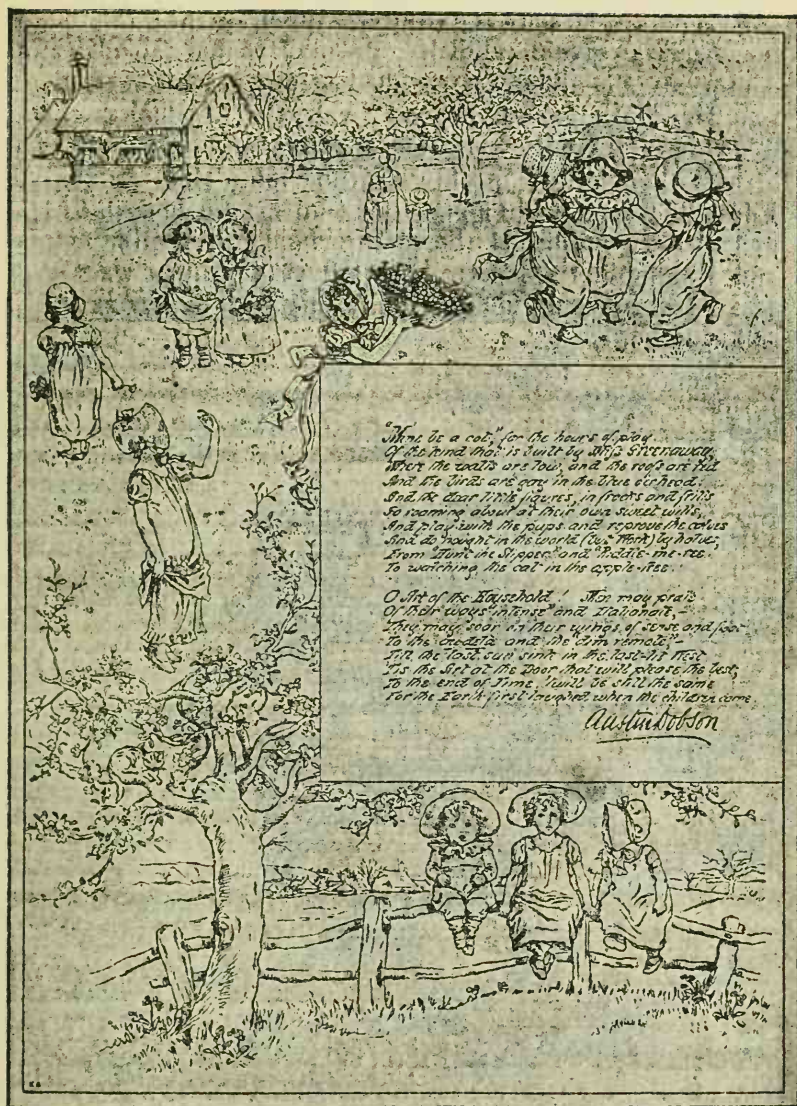 "Mine be a cot," for the hours of play
Of the kind that is built by Miss Greenaway,
Where the walls are low, and the roofs are red
And the birds are gay in the blue o'erhead:
And the dear little figures, in frocks and frills
Go roaming about at their own sweet wills,
And play with the pups and reprove the calves
And do nought in the world (but Work) by halves,
From "Hunt the Slipper" and "Riddle-me-ree"
To watching the cat in the apple-tree.
O Art of the Household! Men may prate
Of their ways "intense" and Italianate, –
They may soar on their wings of sense and
To the and the "dim remote", –
Till the last sun sink in the last-lit West
'Tis the Art at the Door that will please the best;
To the end of Time 'twill be still the same
For the Earth first laughed when the children came.
Austin Dobson
KG